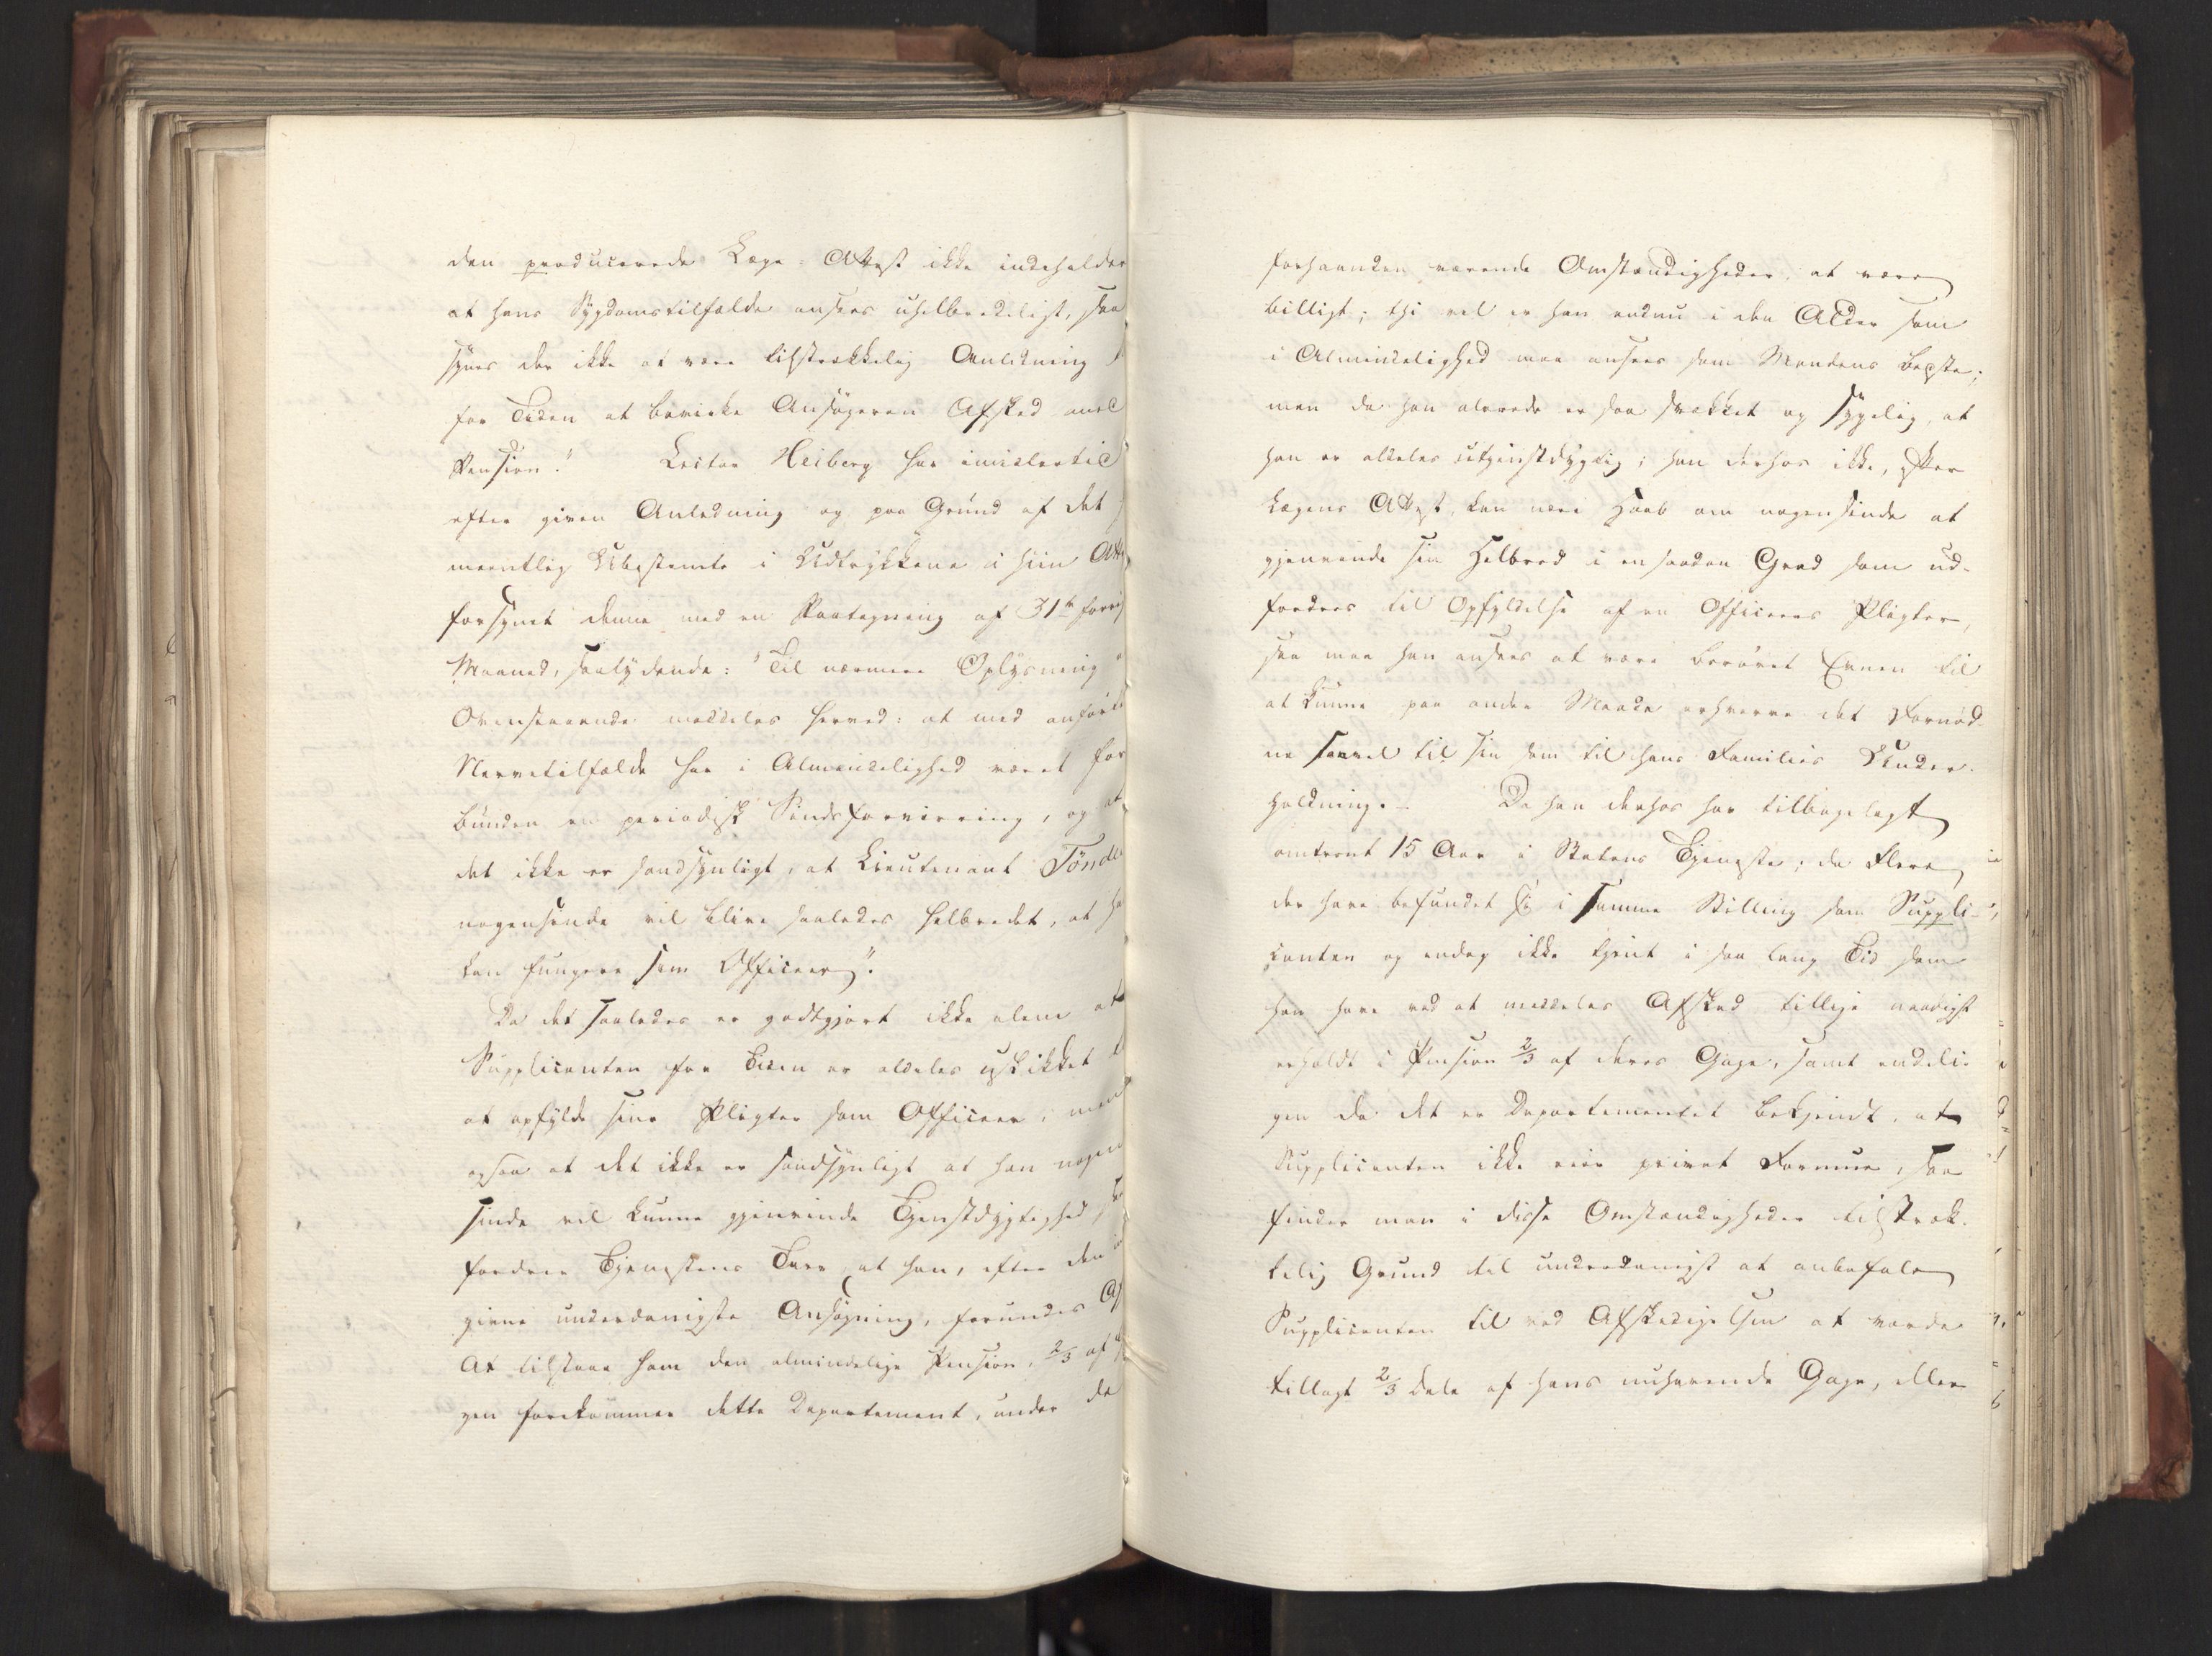 den producerede Læge-Attest ikke indeholder
at hans Sygdomstilfælde ansees uhelbredeligt, saa
synes der ikke at være tilstrækkelig Anledning
for Tiden at bevirke Ansøgeren Afsked med
Pension." Lector Heiberg har imidlertid
efter given Anledning og paa Grund af det
meentlig Ubestemte i Udtrykkene i hiin Att
forsynet denne med en Paategning af 31te forri
Maaned, saalydende: "Til nærmere Oplysning
Ovenstaaende meddeles herved: at med anførte
Nervetilfælde har i Almindelighed været for
bunden en periodisk Sindsforvirring, og at
det ikke er sandsynligt, at Lieutenant Tønde
nogensinde vil blive saaledes helbredet, at ha
kan fungere som Officeer".
Da det saaledes er godtgjort ikke alene at
Supplicanten for Tiden er aldeles uskikket
at opfylde sine Pligter som Officeer, men
ogsaa at det ikke er sandsynligt at han nogen
sinde vil kunne gjenvinde Tjenstdygtighed,
fordrer Tjenestens Tarv at han, efter den
givne underdanigste Ansøgning, forundes Af
At tilstaae ham den almindelige Pension, 2/3 af
gen forekommer dette Departement, under de
forhaanden værende Omstændigheder, at være
billigt; thi vel er han endnu i den Alder som
i Almindelighed maa ansees som Mandens bedste;
men da han alerede er saa svækket og sygelig, at
han er aldeles utjenstdygtig; han derhos ikke, efter
Lægens Attest, kan nære Haab om nogensinde at
gjenvinde sin Helbred i en saadan Grad som ud-
fordres til Opfyldelse af en Officeers Pligter,
saa maa han ansees at være berøvet Evnen til
at kunne paa anden Maade erhverve det Fornød-
ne saavel til sin som til hans Families Under-
holdning. – Da han derhos har tilbagelagt
omtrent 15 Aar i Statens Tjeneste; da Flere,
der have befundet sig i samme Stilling som Suppli-
canten og endog ikke tjent i saa lang Tid som
han have ved at meddeles Afsked tillige naadigst
erholdt i Pension 2/3 af deres Gage, samt endeli-
gen da det er Departementet bekjendt, at
Supplicanten ikke eier privat Formue, saa
finder man i disse Omstændigheder tilstræk-
kelig Grund til underdanigst at anbefale
Supplicanten til ved Afskedigelsen at vorde
tillagt 2/3 Dele af hans nuhavende Gage, eller